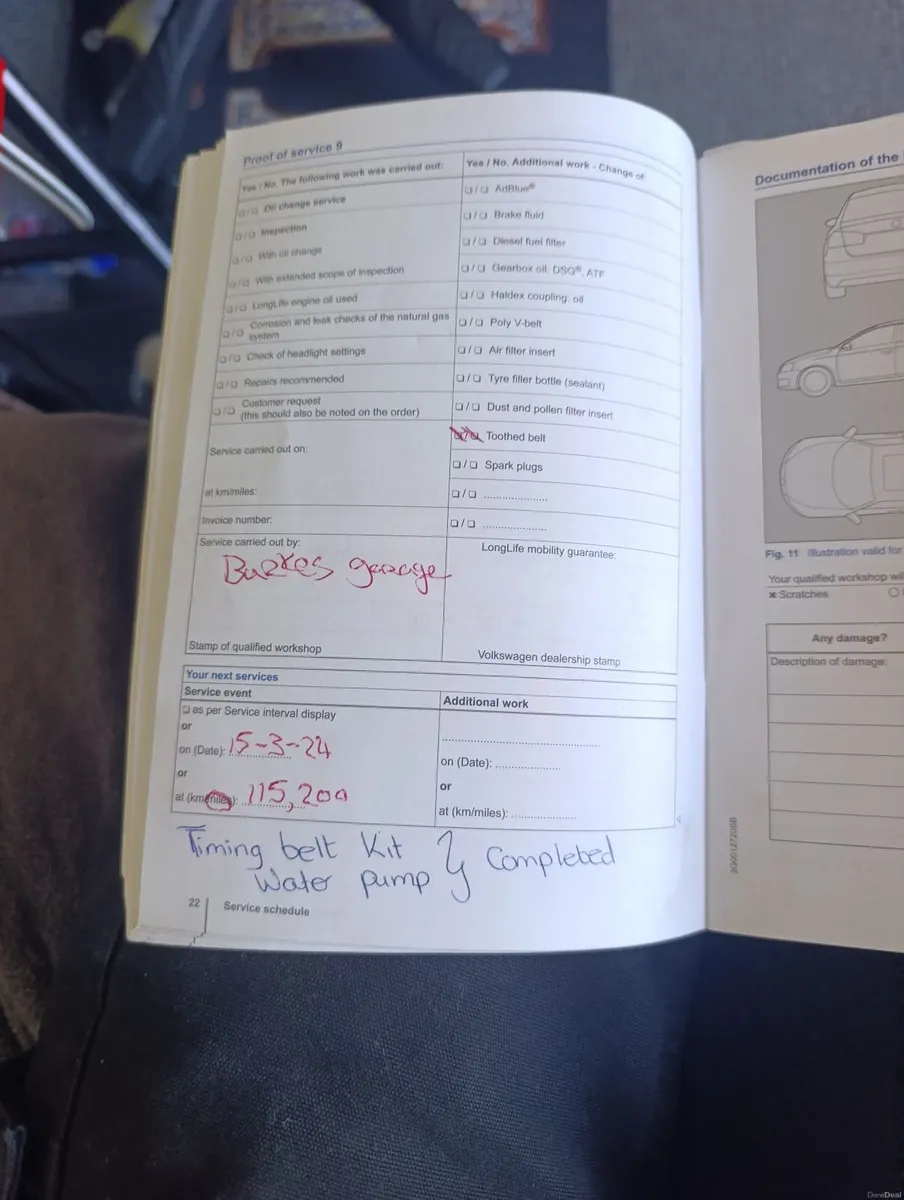 Proof of service 9
Yes / No. The following work was carried out:
❏/❏ Oil change service
❏/❏ Inspection
❏/❏ With oil change
❏/❏ With extended scope of inspection
❏/❏ LongLife engine oil used
❏/❏ Corrosion and leak checks of the natural gas
system
❏/❏ Check of headlight settings
❏/❏ Repairs recommended
❏/❏ Customer request
(this should also be noted on the order)
Service carried out on:
at km/miles:
Invoice number:
Yes / No. Additional work - Change of:
❏/❏ AdBlue®
❏/❏ Brake fluid
❏/❏ Diesel fuel filter
❏/❏ Gearbox oil: DSG®, ATF
❏/❏ Haldex coupling: oil
❏/❏ Poly V-belt
❏/❏ Air filter insert
❏/❏ Tyre filler bottle (sealant)
❏/❏ Dust and pollen filter insert
❏/❏ Toothed belt
❏/❏ Spark plugs
❏/❏ ....................
❏/❏ ....................
Service carried out by:
garage
Stamp of qualified workshop
LongLife mobility guarantee:
Volkswagen dealership stamp
Your next services
Service event
❏ as per Service interval display
or
on (Date): 15-3-24
or
at (km/miles): 115,200
Additional work
on (Date): ....................
or
at (km/miles): ....................
Timing belt Kit
Water pump } Completed
22
Service schedule
Documentation of the
Fig. 11 Illustration valid for
Your qualified workshop will
✖ Scratches
Any damage?
Description of damage:
DoneDeal